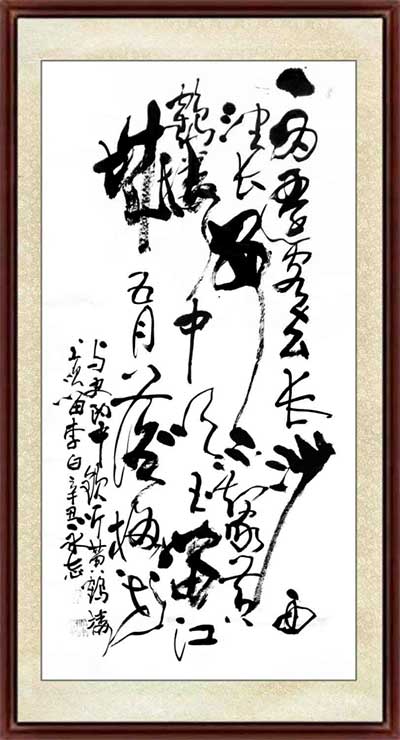 一为迁客去长沙西
望长安不见家黄
鹤楼中吹玉笛江
城五月落梅花
与史郎中钦听黄鹤楼
上吹笛李白辛丑永志